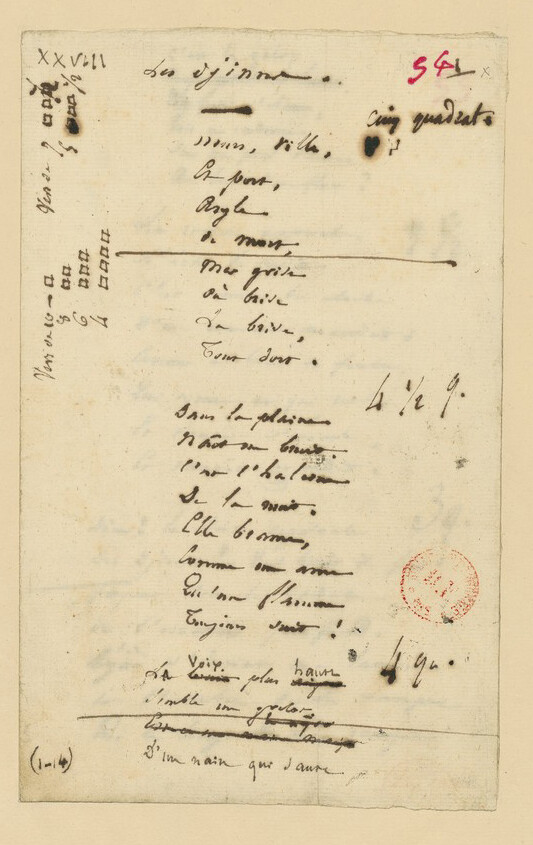 XXVIII
Les Djinns.
54
cinq quadrat.
murs, ville,
Et port,
Asyle
de mort,
Mer grise
où brise
La brise,
Tout dort.
4 1/2 q.
Dans la plaine
Naît un bruit.
C'est l'haleine
De la nuit.
Elle brame,
Comme une ame
Qu'une flamme
Toujours suit!
4 qu.
La voix plus haute
Semble un grelot
D'un nain qui saute
(1-14)
Vers de 7
5
Vers de 10
8
6
4